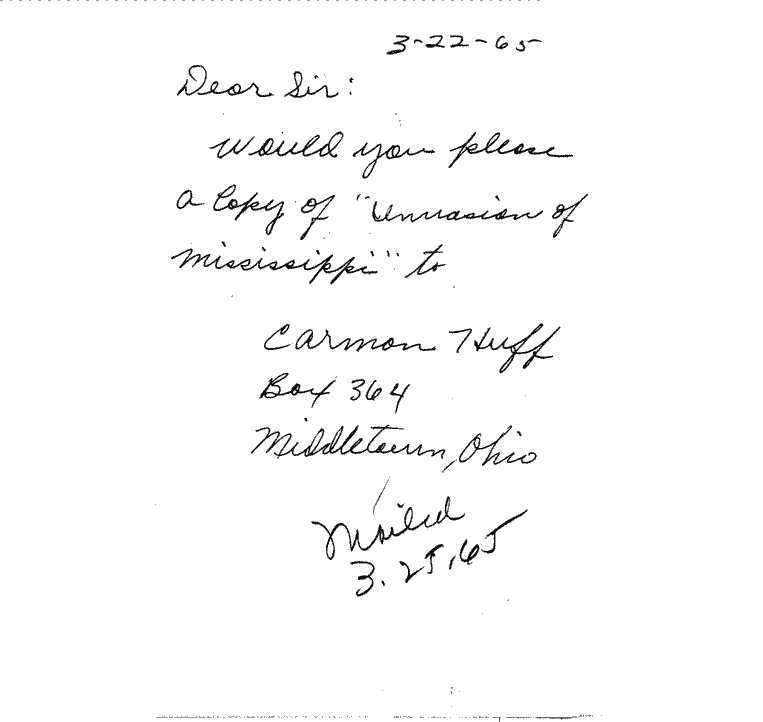 3-22-65
Dear Sir:
Would you please
a Copy of "Unvasion of
Mississippi" to
Carmon Huff
Box 364
Middletown, Ohio
Mailed
3.25.65